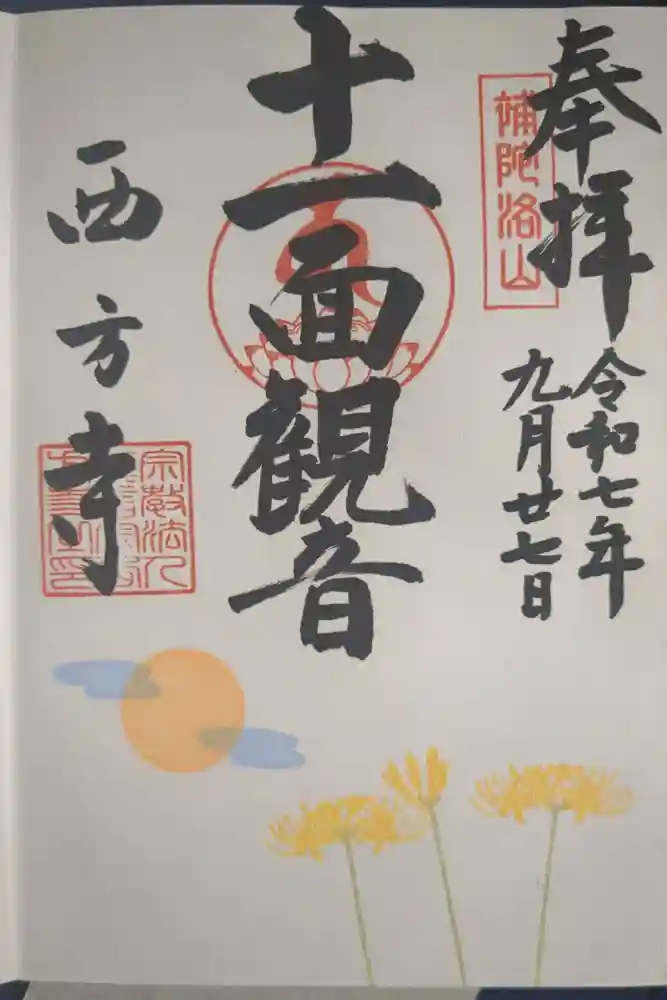 奉拝
補陀洛山
令和七年
九月廿七日
十一面観音
西方寺
宗教法人